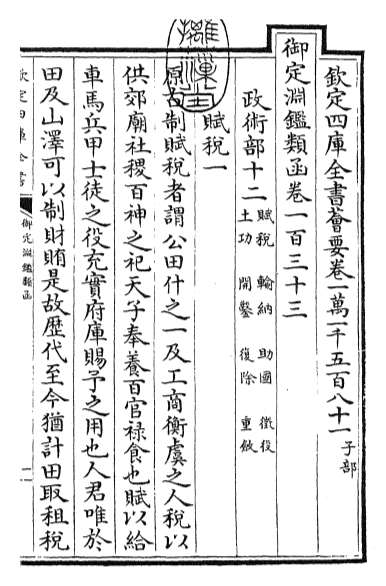 欽定四庫全書薈要卷一萬一千五百八十一 子部
御定淵鑑類函卷一百三十三
政術部十二 賦稅 輸納 助國 徵役
土功 開鑿 復除 重斂
賦稅一
原古制賦稅者謂公田什之一及工商衡虞之人稅以
供郊廟社稷百神之祀天子奉養百官祿食也賦以給
車馬兵甲士徒之役充實府庫賜予之用也人君唯於
田及山澤可以制財賄是故歷代至今猶計田取租稅
欽定四庫全書
御定淵鑑類函